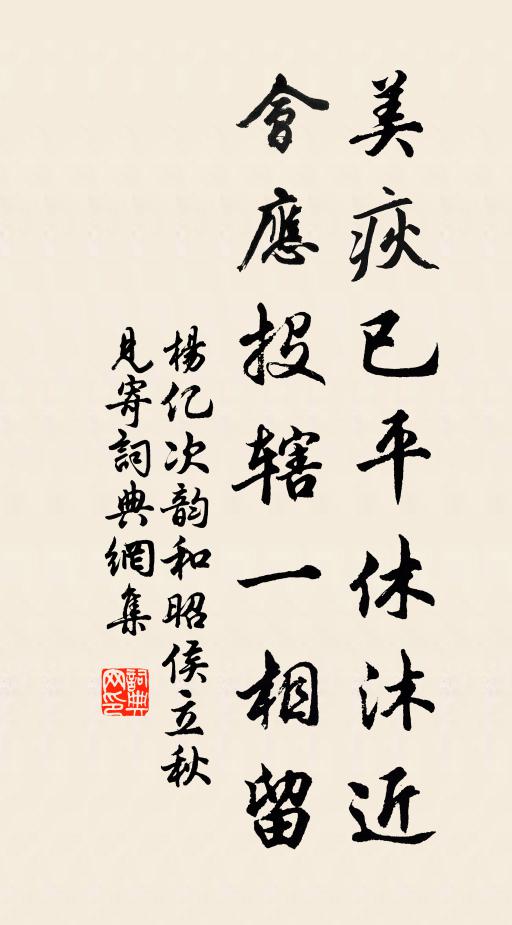 美疢已平休沐近
會應投辖一相留
楊亿次韵和昭侯立秋
見寄詞典網集
詞典网印